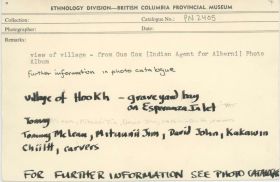 ETHNOLOGY DIVISION—BRITISH COLUMBIA PROVINCIAL MUSEUM
Collection: Catalogue No.: PN 2405
Photographer: Date:
Remarks:
view of village - from Gus Cox [Indian Agent for Alberni] Photo
Album
Further information in photo catalogue
village of Hookh - graveyard bay
on Esperanza Inlet
Tommy
Tommy McLean, Mituunii Jim, David John, Kakawin
Chiitt, carvers
FOR FURTHER INFORMATION SEE PHOTO CATALOGUE